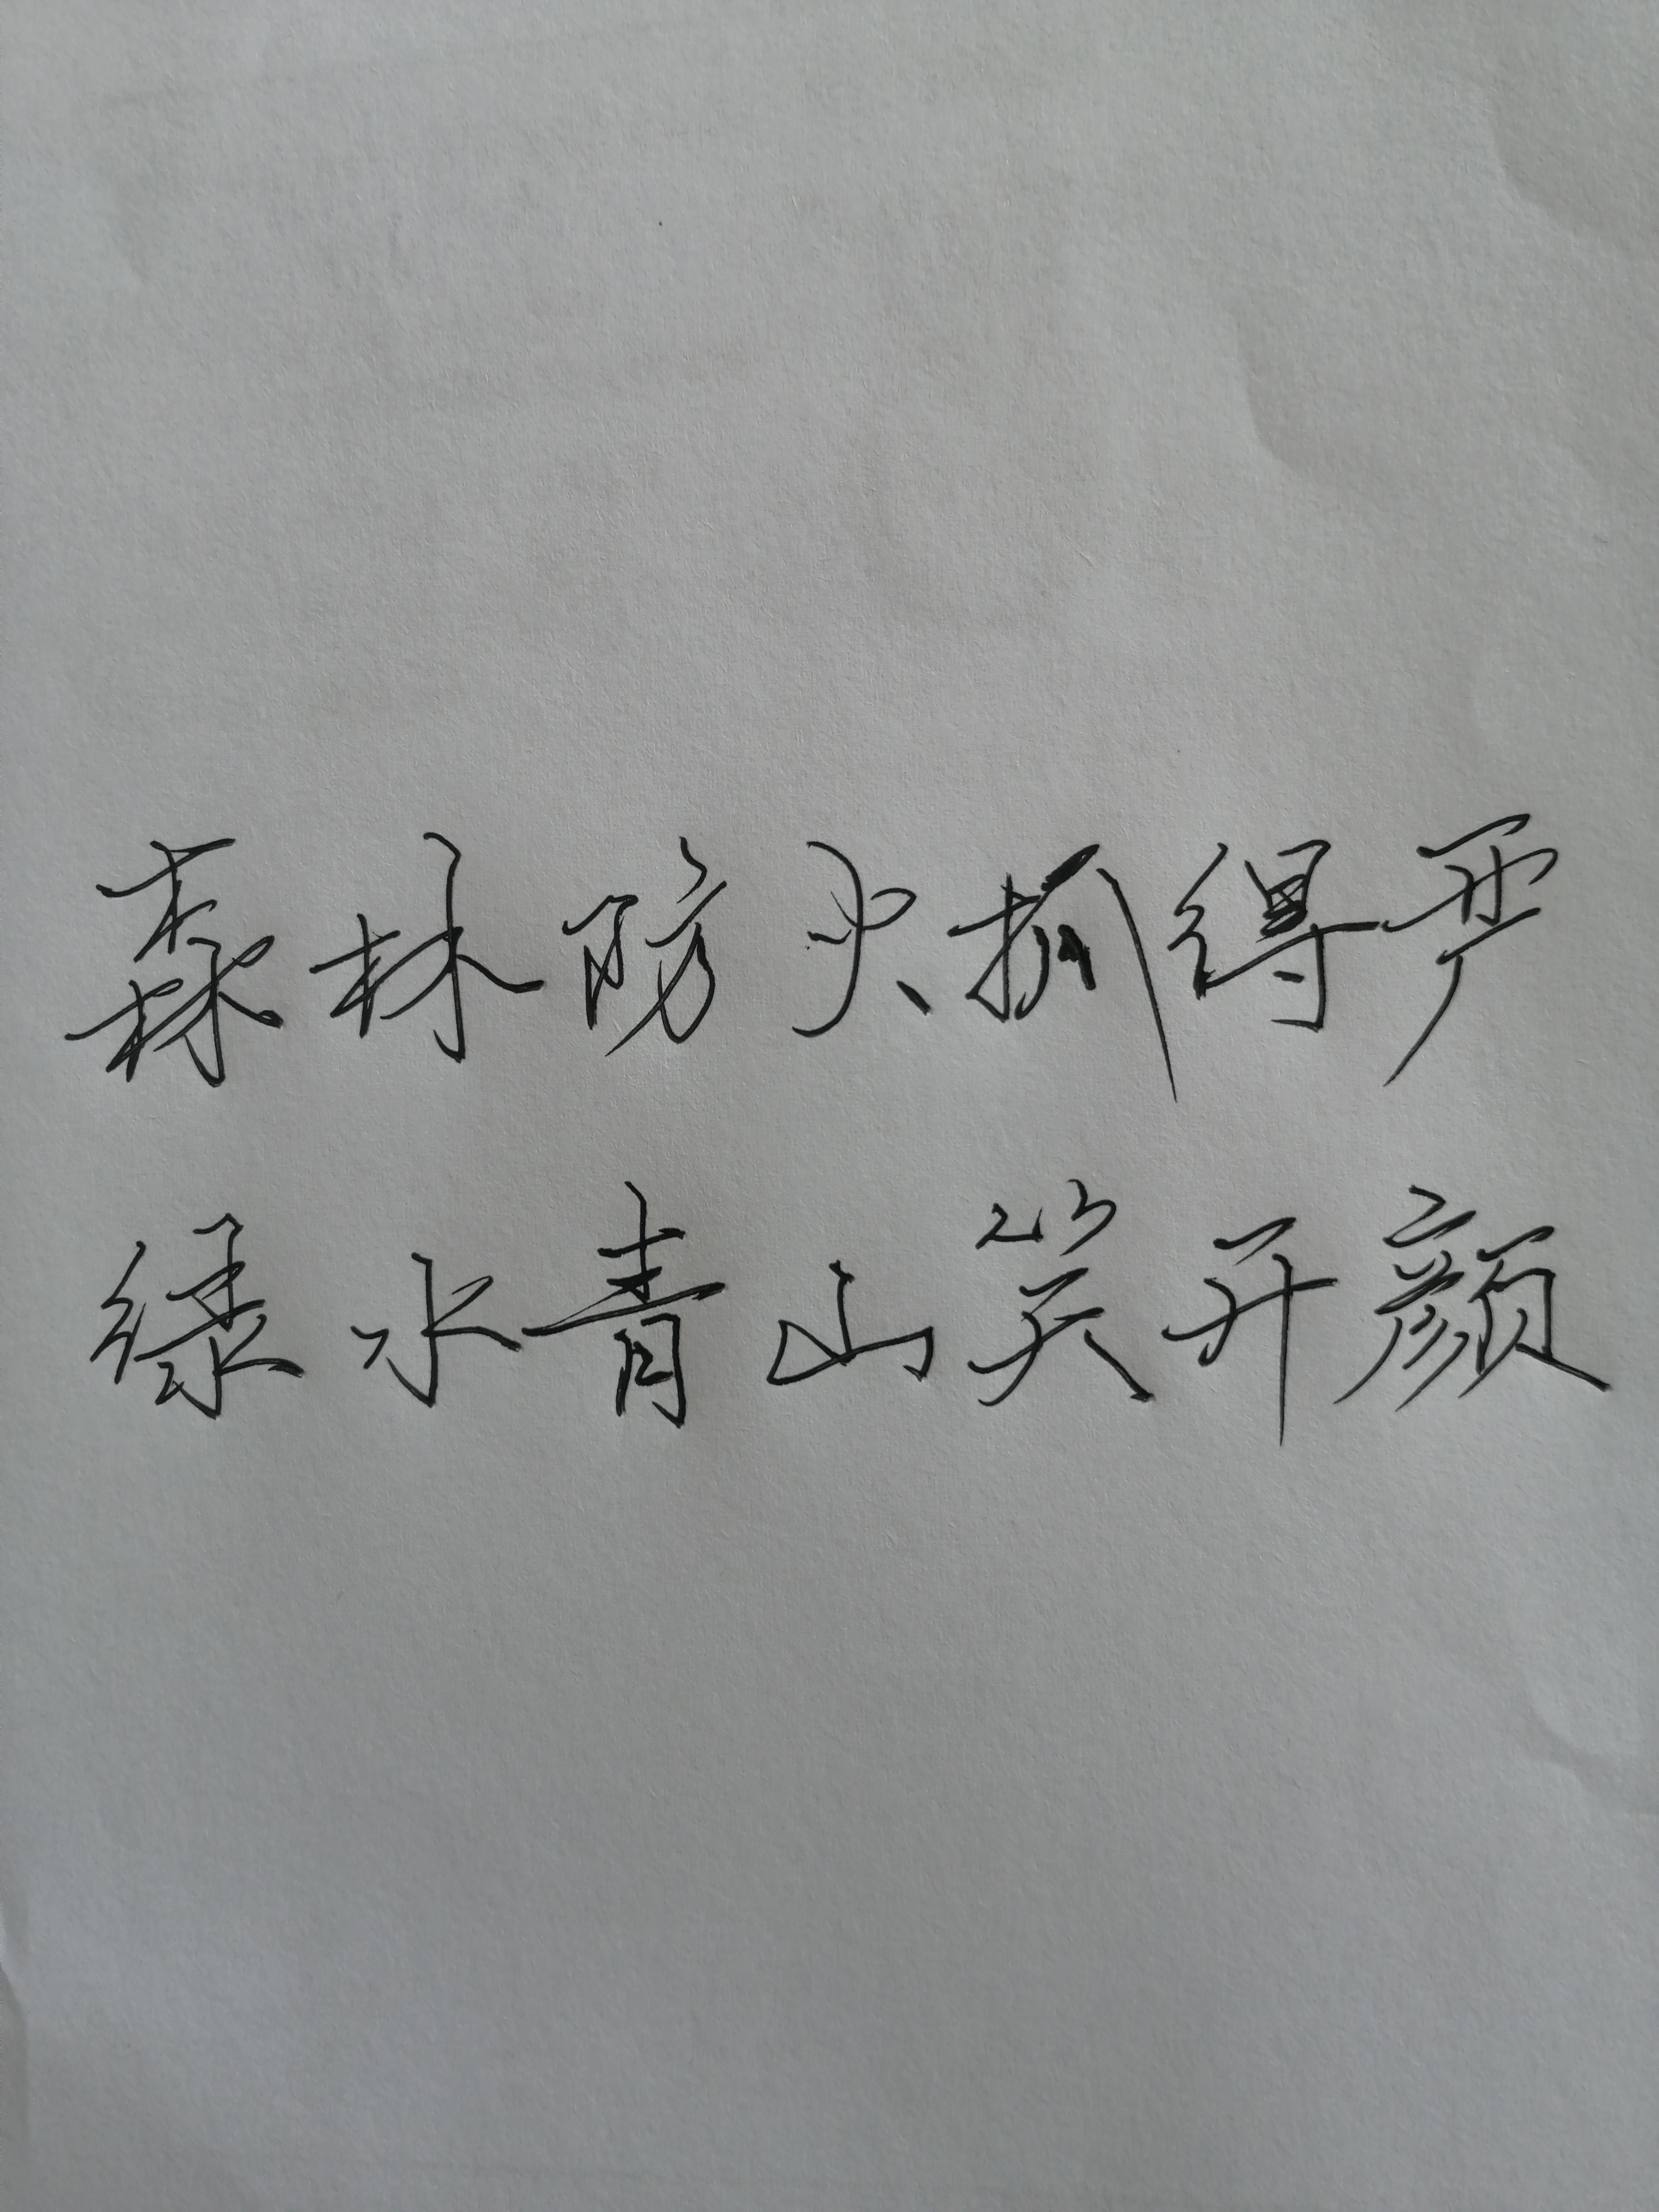 森林防火抓得严
绿水青山笑开颜